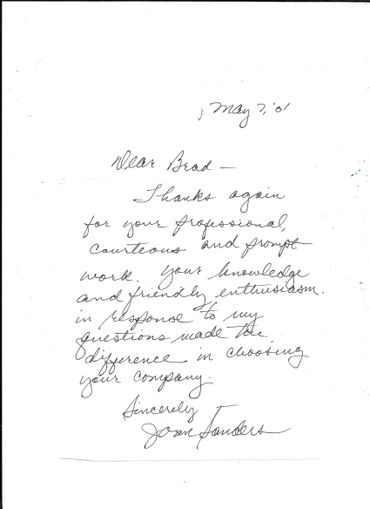 May 7, '01
Dear Brad —
Thanks again
for your professional,
courteous and prompt
work. Your knowledge
and friendly enthusiasm.
in response to my
questions made the
difference in choosing
your company.
Sincerely
Joan Sanders